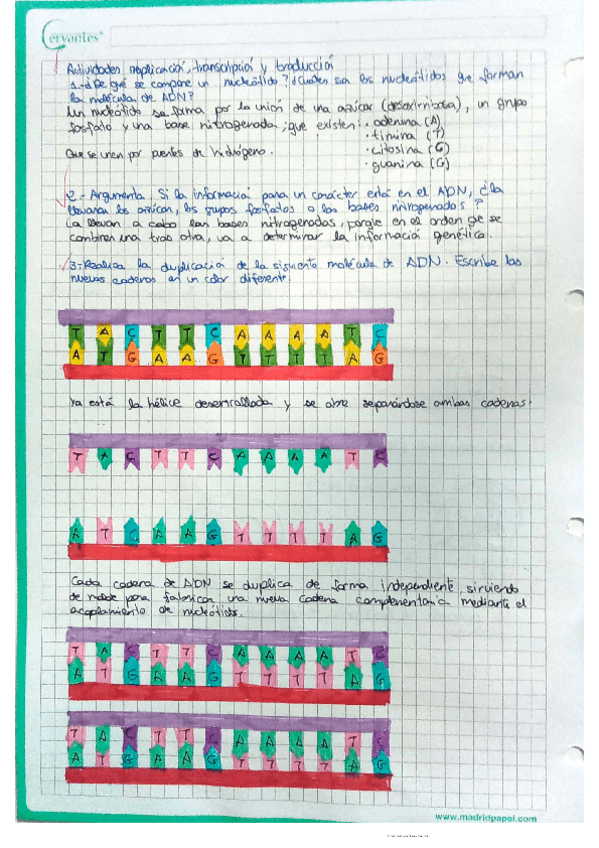 Cervantes
Actividades replicación, transcripción y traducción
1.- ¿De qué se compone un nucleótido? ¿Cuáles son los nucleótidos que forman
la molécula de ADN?
Un nucleótido se forma por la unión de una azúcar (desoxirribosa), un grupo
fosfato y una base nitrogenada, que existen: · adenina (A)
· timina (T)
Que se unen por puentes de hidrógeno. · citosina (C)
· guanina (G)
2.- Argumenta. Si la información para un carácter está en el ADN, ¿la
llevarán los azúcares, los grupos fosfatos o las bases nitrogenadas?
La llevan a cabo las bases nitrogenadas, porque en el orden que se
combinen una tras otra, va a determinar la información genética.
3.- Realiza la duplicación de la siguiente molécula de ADN. Escribe las
nuevas cadenas en un color diferente.
T A C T T C A A A A T C
A T G A A G T T T T A G
Ya está la hélice desenrollada y se abre separándose ambas cadenas.
T A C T T C A A A A T C
A T C A A G T T T T A G
Cada cadena de ADN se duplica de forma independiente, sirviendo
de molde para fabricar una nueva cadena complementaria mediante el
acoplamiento de nucleótidos.
T A C T T C A A A A T C
A T G A A G T T T T A G
T A C T T C A A A A T C
A T G A A G T T T T A G
www.madridpapel.com